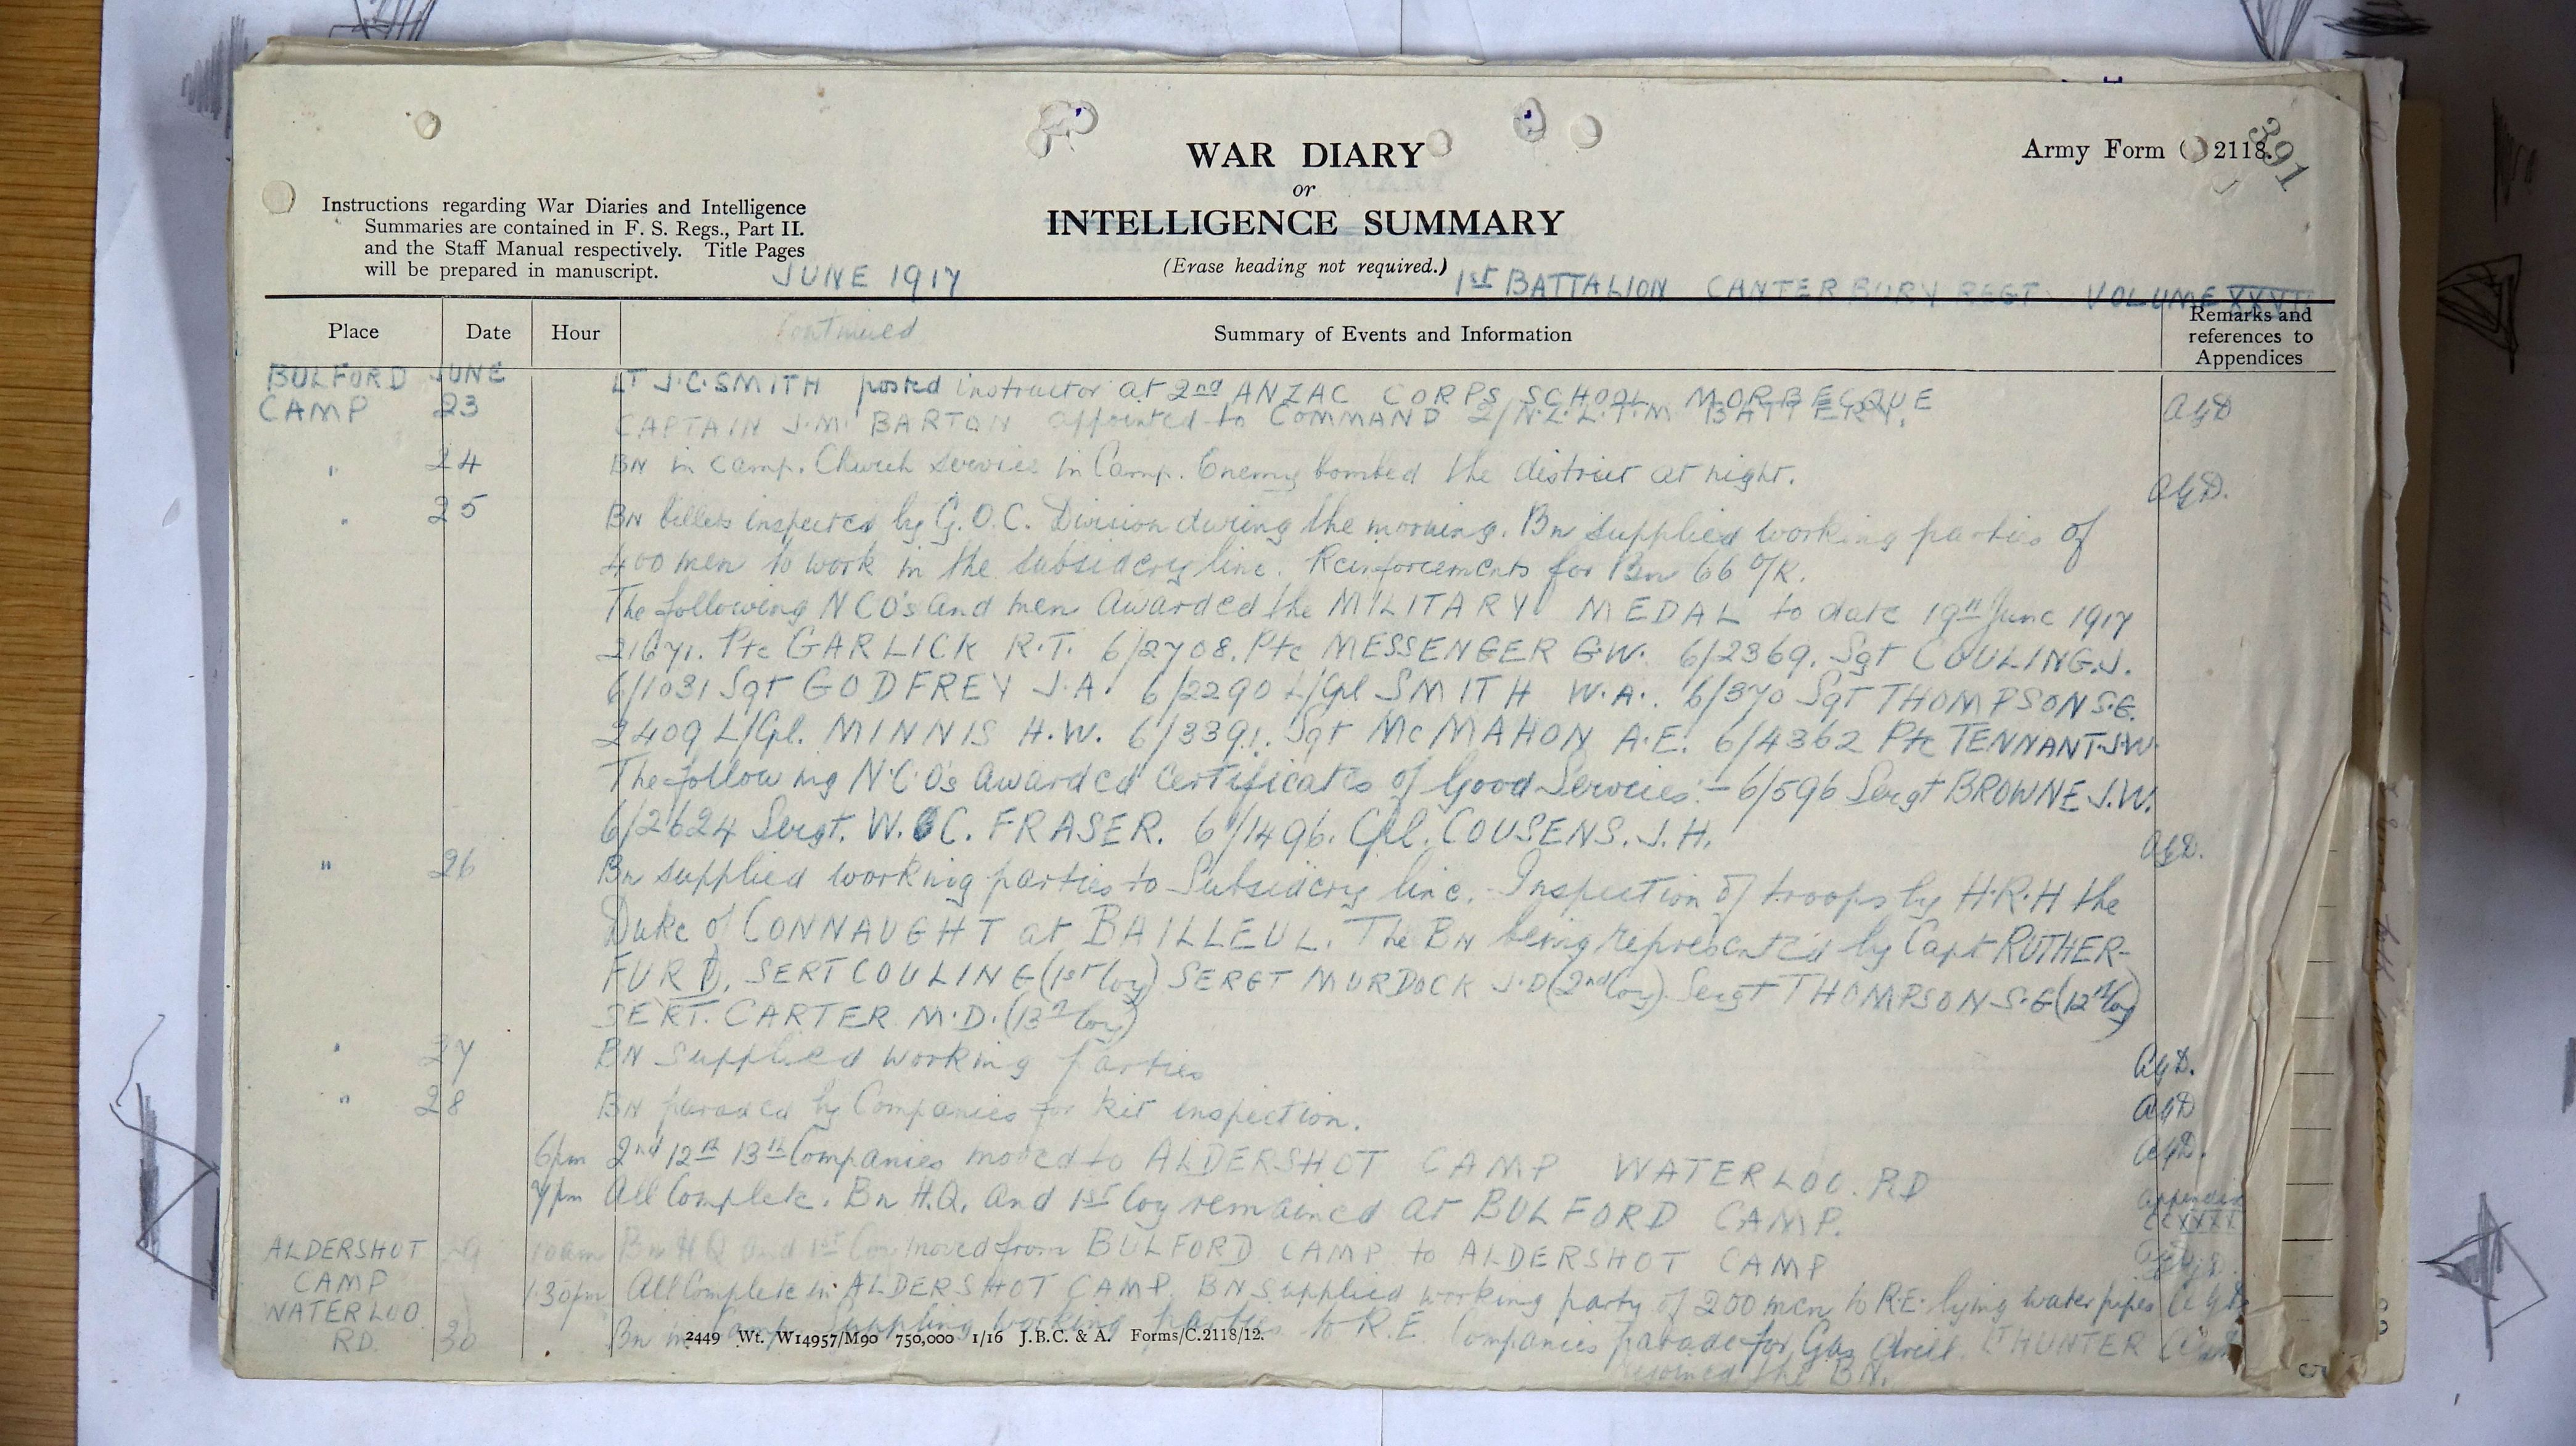 WAR DIARY
or
INTELLIGENCE SUMMARY
(Erase heading not required.)
Army Form 2118.
391
Instructions regarding War Diaries and Intelligence
Summaries are contained in F. S. Regs., Part II.
and the Staff Manual respectively. Title Pages
will be prepared in manuscript.
JUNE 1917
1st BATTALION CANTERBURY REGT VOLUME
Place Date Hour Continued Summary of Events and Information Remarks and
references to
Appendices
BULFORD JUNE LT J.C. SMITH posted instructor at 2nd ANZAC CORPS SCHOOL MORBECQUE
CAMP 23 CAPTAIN J.M. BARTON appointed to COMMAND 2/N.Z.L.T.M BATTERY. AGD
" 24 BN in camp. Church service in Camp. Enemy bombed the district at night. AGD.
" 25 BN billets inspected by G.O.C. Division during the morning. Bn supplied working parties of
400 men to work in the subsidery line. Reinforcements for Bn 66 O/R.
The following NCO's and men awarded the MILITARY MEDAL to date 19th June 1917
21671. Pte GARLICK R.T. 6/2708. Pte MESSENGER G.W. 6/2369. Sgt COULING.J.
6/1031 Sgt GODFREY J.A. 6/2290 L/Cpl SMITH W.A. 6/370 Sgt THOMPSON S.G.
2409 L/Cpl. MINNIS H.W. 6/3391. Sgt McMAHON A.E. 6/4362 Pte TENNANT J.W.
The following N.C.O's awarded Certificates of Good Services:- 6/596 Sergt BROWNE J.W.
6/2624 Sergt. W. C. FRASER. 6/1496. Cpl. COUSENS. J.H. AGD.
" 26 Bn supplied working parties to Subsidery line. Inspection of troops by H.R.H the
Duke of CONNAUGHT at BAILLEUL. The BN being represented by Capt RUTHER-
FURD, SERT COULING (1st Coy) SERGT MURDOCK J.D (2nd Coy). Sergt THOMPSON S.G (12th Coy)
SERT. CARTER M.D. (13th Coy)
" 27 BN supplied working parties AGD.
" 28 BN paraded by Companies for kit inspection. AGD
6pm 2nd 12th 13th Companies moved to ALDERSHOT CAMP WATERLOO. RD AGD.
7pm All Complete. Bn H.Q. and 1st Coy remained at BULFORD CAMP. Appendix
ALDERSHOT 29 10am Bn HQ and 1st Coy moved from BULFORD CAMP to ALDERSHOT CAMP
CAMP 1.30pm All Complete in ALDERSHOT CAMP. BN supplied working party of 200 men to R.E. lying water pipes AGD
WATERLOO
RD. 30 Bn in Camp supplying working parties to R.E. Companies parade for Gas drill. LT HUNTER
rejoined the BN.
2449 Wt. W14957/M90 750,000 1/16 J.B.C. & A. Forms/C.2118/12.